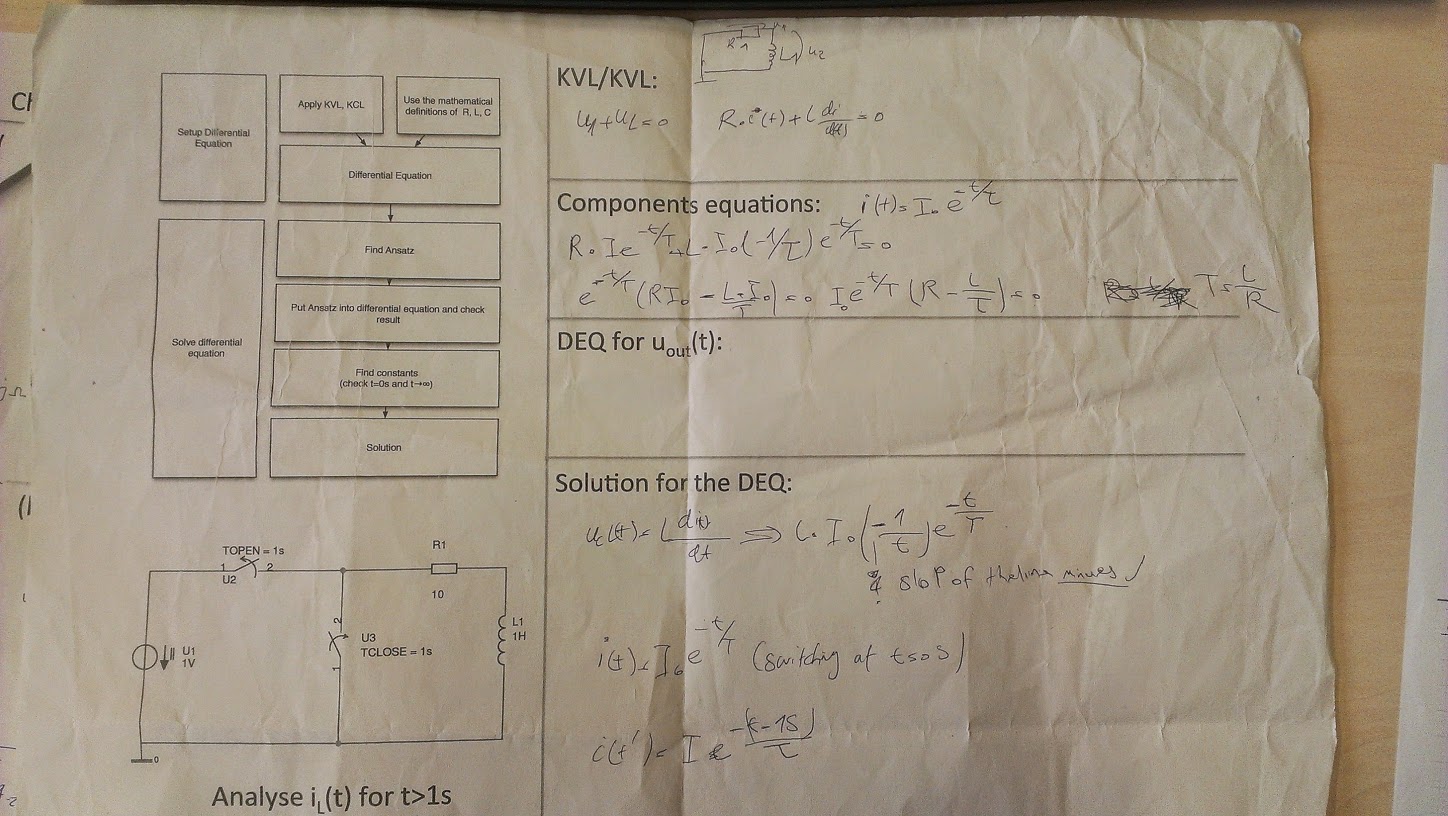 Setup Differential
Equation
Apply KVL, KCL
Use the mathematical
definitions of R, L, C
Differential Equation
Solve differential
equation
Find Ansatz
Put Ansatz into differential equation and check
result
Find constants
(check t=0s and t→∞)
Solution
TOPEN = 1s
1 2
U2
R1
10
L1
1H
2
U3
TCLOSE = 1s
1
U1
1V
0
Analyse iL(t) for t>1s
R1 L u2
KVL/KVL:
u1+uL=0 R.i(t)+L di/dt=0
Components equations: i(t)= I0 e^-t/τ
R. I e^-t/τ + L. I0(-1/τ) e^-t/τ = 0
e^-t/τ (RI0 - L.I0/τ) = 0 I0 e^-t/τ (R - L/τ) = 0 τ = L/R
DEQ for uout(t):
Solution for the DEQ:
uL(t)= L di(t)/dt ⇒ L. I0 (-1/t) e^-t/τ
slop of the line minues
i(t)= I0 e^-t/τ (switching at t=0s)
i(t')= I e^-(t-1s)/τ